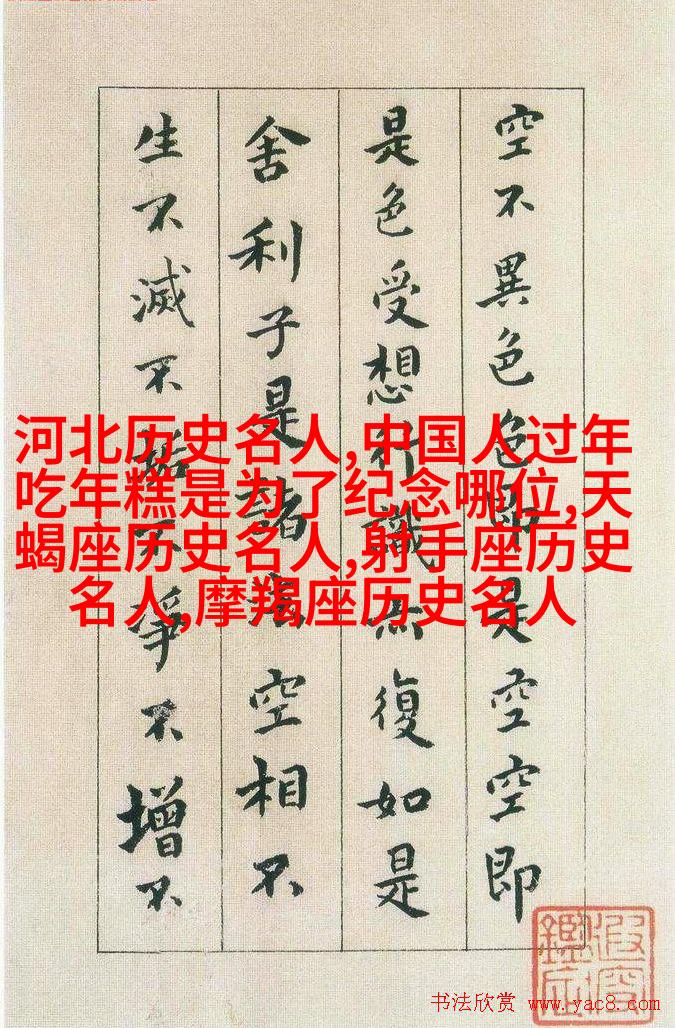 空不異色色即是空空即
是色受想行識亦復如是
舍利子是諸法空相不
生不滅不垢不淨不增不
河北历史名人,中国人过年
吃年糕是为了纪念哪位,天
蝎座历史名人,射手座历史
名人,摩羯座历史名人
书法欣赏 www.yac8.com